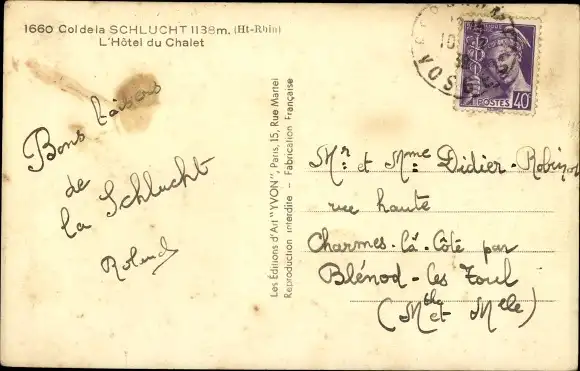 1660 Col de la SCHLUCHT 1138m. (Ht-Rhin)
L'Hôtel du Chalet
Bons baisers
de
la Schlucht
Roland
Les Éditions d'Art "YVON", Paris, 15, Rue Martel
Reproduction interdite - Fabrication Française
VOSGES
POSTES 40c
Mr. et Mme Didier-Robinot
rue haute
Charmes-la-Côte par
Blénod-les Toul
(Mthe et Mlle)